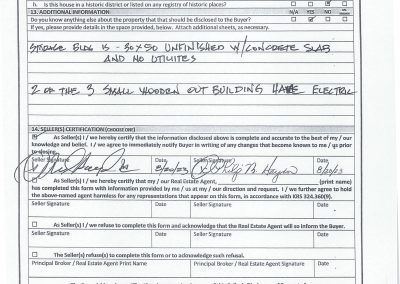 h. Is this house in a historic district or listed on any registry of historic places?
13. ADDITIONAL INFORMATION: N/A YES NO
Do you know anything else about the property that that should be disclosed to the Buyer?
If yes, please provide details in the space provided, below. Attach additional sheets, as necessary.
STORAGE BLDG IS - 30X50 UNFINISHED W/CONCRETE SLAB
AND NO UTILITES
2 OF THE 3 SMALL WOODEN OUT BUILDING HAVE ELECTRIC
14. SELLER(S) CERTIFICATION (CHOOSE ONE)
As Seller(s) I / we hereby certify that the information disclosed above is complete and accurate to the best of my / our
knowledge and belief. I / we agree to immediately notify Buyer in writing of any changes that become known to me / us prior
to closing.
Seller Signature Date Seller Signature Date
8/20/23 8/20/23
As Seller(s) I / we hereby certify that my / our Real Estate Agent, (print name)
has completed this form with information provided by me / us at my / our direction and request. I / we further agree to hold
the above-named agent harmless for any representations that appear on this form, in accordance with KRS 324.360(9).
Seller Signature Date Seller Signature Date
As Seller(s) I / we refuse to complete this form and acknowledge that the Real Estate Agent will so inform the Buyer.
Seller Signature Date Seller Signature Date
The Seller(s) refuse(s) to complete this form or to acknowledge such refusal.
Principal Broker / Real Estate Agent Print Name Principal Broker / Real Estate Agent Signature Date